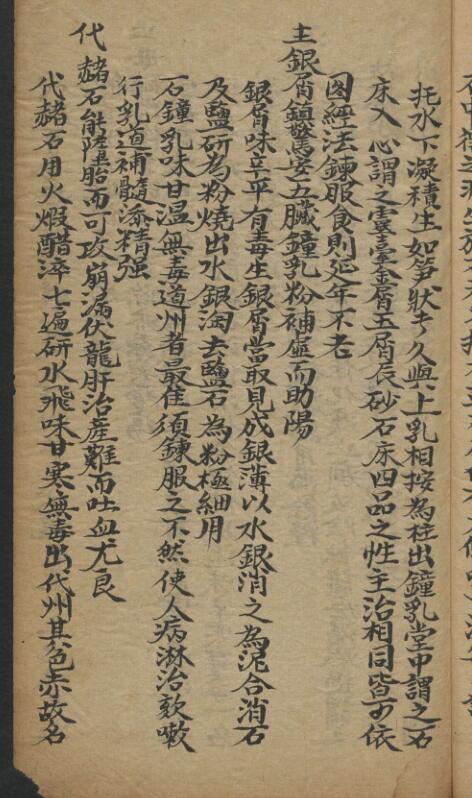 托水下凝積生如笋狀者久與上乳相接為柱出鐘乳堂中謂之石
床入心謂之靈臺金屑玉屑辰砂石床四品之性主治相同皆可依
圖經法鍊服食則延年不老
主銀屑鎮驚安五臟鐘乳粉補虛而助陽
銀屑味辛平有毒生銀屑當取見成銀薄以水銀消之為泥合消石
及鹽研為粉燒出水銀淘去鹽石為粉極細用
石鐘乳味甘溫無毒道州者最佳須鍊服之不然使人病淋治欬嗽
行乳道補髓添精强
代赭石能墮胎而可攻崩漏伏龍肝治產難而吐血尤良
代赭石用火煆醋淬七遍研水飛味甘寒無毒出代州其色赤故名